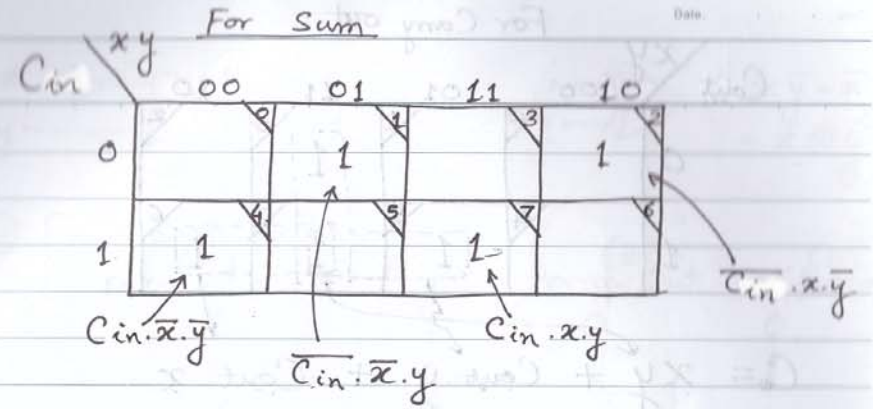 For Sum
Date.
x y
Cin
00 01 11 10
0 1 3 2
0 1 1
4 5 7 6
1 1 1
$\overline{Cin}.x.\overline{y}$
$Cin.\overline{x}.\overline{y}$ $Cin.x.y$
$\overline{Cin}.\overline{x}.y$